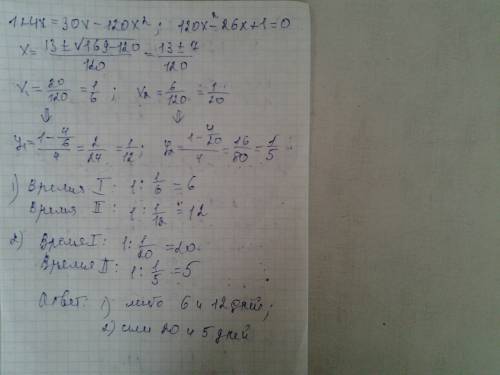 1+4x=30x-120x²; 120x²-26x+1=0
x=(13±√(169-120))/120=(13±7)/120
x₁=20/120=1/6; x₂=6/120=1/20
⇓ ⇓
y₁=(1-4/6)/4=2/24=1/12; y₂=(1-4/20)/4=16/80=1/5
1) Время I: 1:1/6=6
Время II: 1:1/12=12
2) Время I: 1:1/20=20
Время II: 1:1/5=5
Ответ: 1) либо 6 и 12 дней;
2) или 20 и 5 дней